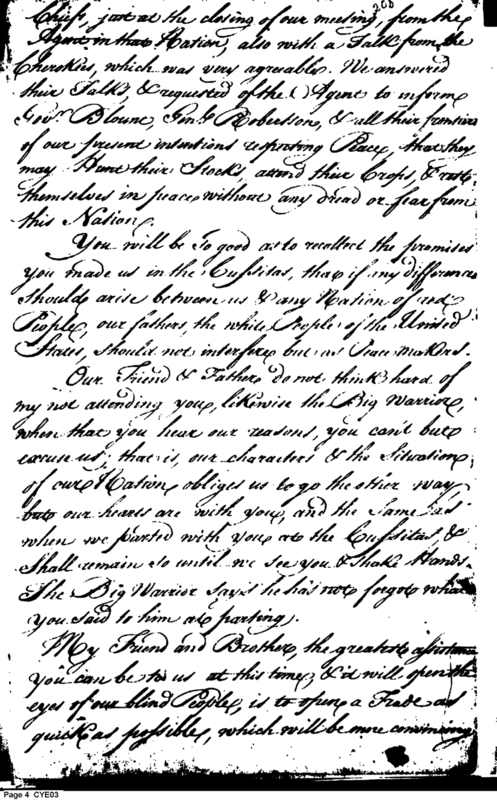 208
Chief, just at the closing of our meeting, from the
Agent in that Nation, also with a Talk from the
Cherokies, which was very agreable. We answered
their Talk, & requested of the Agent to inform
Govr. Blount, Genl. Robertson, & all their frontiers
of our present intentions respecting Peace, that they
may Hunt their Stocks, attend their Crops, & rest
themselves in peace without any dread or fear from
this Nation.
You will be so good as to recollect the promises
you made us in the Cussitas, that if any difference
should arise between us & any Nation of red
People, our fathers, the white People of the United
States, should not interfere but as Peace makers.
Our Friend & Father do not think hard of
my not attending you, likewise the Big Warrior,
when that you hear our reasons, you can't but
excuse us; that is, our characters & the Situation
of our Nation obliges us to go the other way,
but our hearts are with you, and the same as
when we parted with you at the Cussitas, &
shall remain so until we see you & shake Hands.
The Big Warrior says he has not forgot what
you said to him at parting.
My Friend and Brother, the greatest assistance
you can be to us at this time, & it will open the
eyes of our blind People, is to open a Trade as
quick as possible, which will be more convincing
Page 4 CYE03